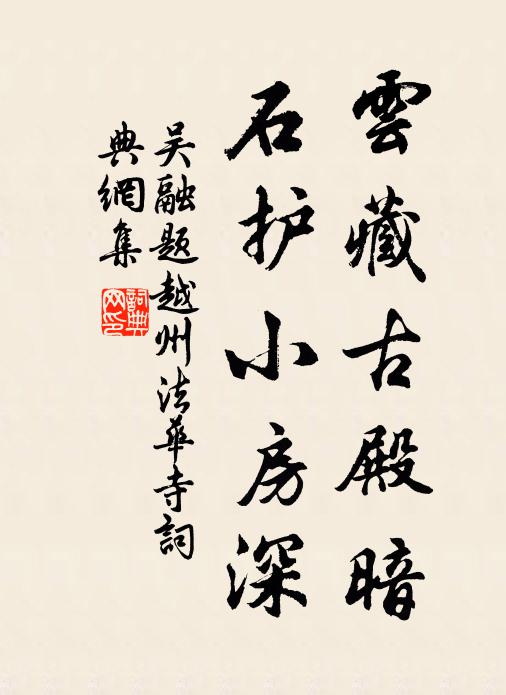 雲藏古殿暗
石护小房深
吴融题越州法華寺詞
典網集
詞典
网印